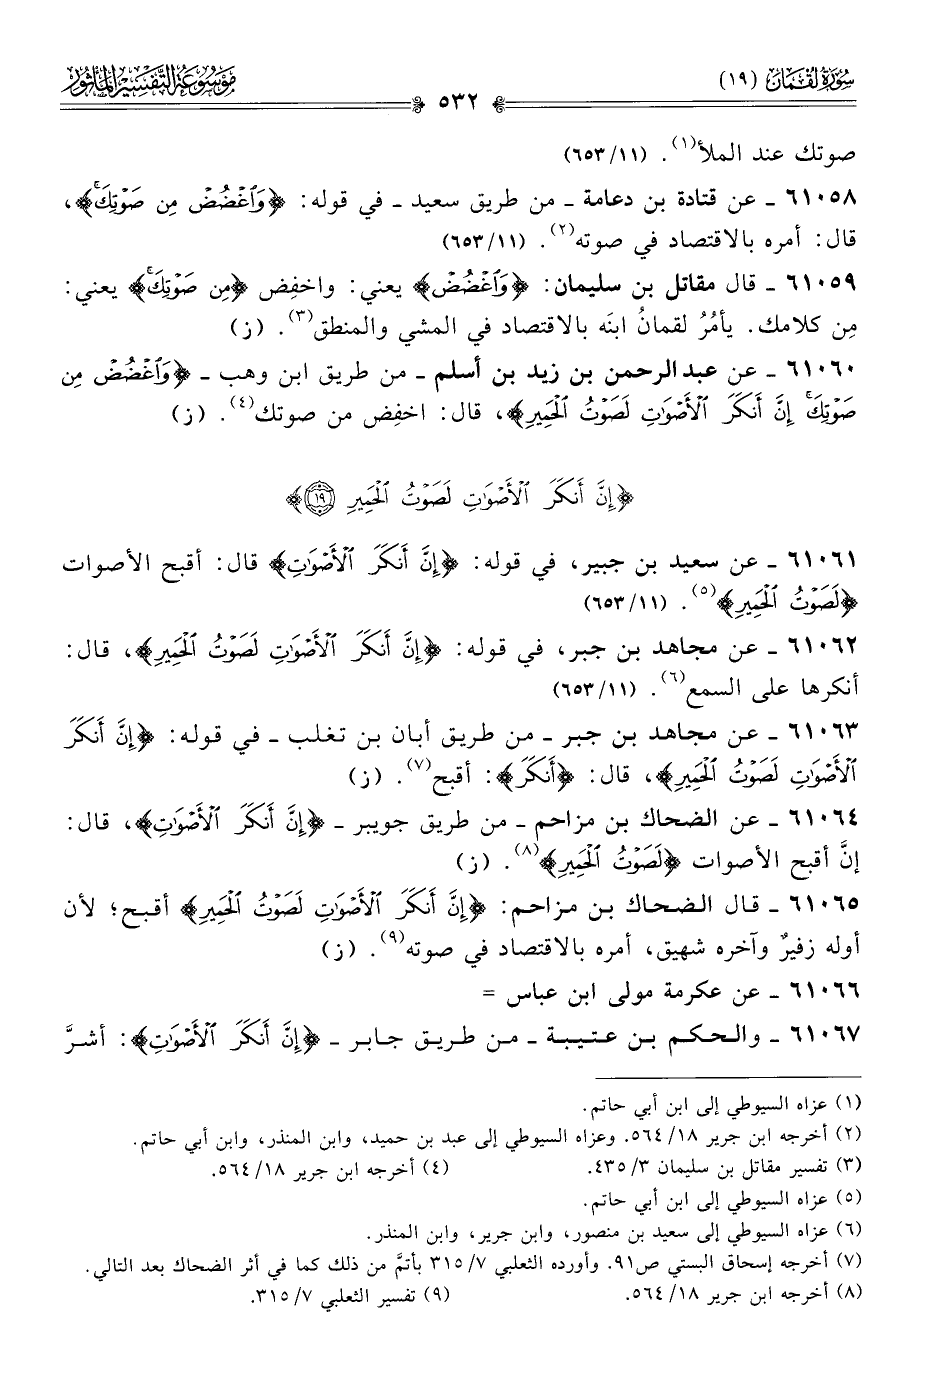 سُورَةُ لُقْمَان (١٩)
٥٣٢
مَوْسُوعَةُ التَّفْسِيرِ المَأْثُور
صوتك عند الملأ(١). (٦٥٣/١١)
٦١٠٥٨ ـ عن قتادة بن دعامة ـ من طريق سعيد ـ في قوله: ﴿وَٱغْضُضْ مِن صَوْتِكَۚ﴾،
قال: أمره بالاقتصاد في صوته(٢). (٦٥٣/١١)
٦١٠٥٩ ـ قال مقاتل بن سليمان: ﴿وَٱغْضُضْ﴾ يعني: واخفِض ﴿مِن صَوْتِكَۚ﴾ يعني:
مِن كلامك. يأمُرُ لقمانُ ابنَه بالاقتصاد في المشي والمنطق(٣). (ز)
٦١٠٦٠ ـ عن عبدالرحمن بن زيد بن أسلم ـ من طريق ابن وهب ـ ﴿وَٱغْضُضْ مِن
صَوْتِكَۚ إِنَّ أَنكَرَ ٱلْأَصْوَٰتِ لَصَوْتُ ٱلْحَمِيرِ﴾، قال: اخفِض من صوتك(٤). (ز)
﴿إِنَّ أَنكَرَ ٱلْأَصْوَٰتِ لَصَوْتُ ٱلْحَمِيرِ ١٩﴾
٦١٠٦١ ـ عن سعيد بن جبير، في قوله: ﴿إِنَّ أَنكَرَ ٱلْأَصْوَٰتِ﴾ قال: أقبح الأصوات
﴿لَصَوْتُ ٱلْحَمِيرِ﴾(٥). (٦٥٣/١١)
٦١٠٦٢ ـ عن مجاهد بن جبر، في قوله: ﴿إِنَّ أَنكَرَ ٱلْأَصْوَٰتِ لَصَوْتُ ٱلْحَمِيرِ﴾، قال:
أنكرها على السمع(٦). (٦٥٣/١١)
٦١٠٦٣ ـ عن مجاهد بن جبر ـ من طريق أبان بن تغلب ـ في قوله: ﴿إِنَّ أَنكَرَ
ٱلْأَصْوَٰتِ لَصَوْتُ ٱلْحَمِيرِ﴾، قال: ﴿أَنكَرَ﴾: أقبح(٧). (ز)
٦١٠٦٤ ـ عن الضحاك بن مزاحم ـ من طريق جويبر ـ ﴿إِنَّ أَنكَرَ ٱلْأَصْوَٰتِ﴾، قال:
إنَّ أقبح الأصوات ﴿لَصَوْتُ ٱلْحَمِيرِ﴾(٨). (ز)
٦١٠٦٥ ـ قال الضحاك بن مزاحم: ﴿إِنَّ أَنكَرَ ٱلْأَصْوَٰتِ لَصَوْتُ ٱلْحَمِيرِ﴾ أقبح؛ لأن
أوله زفيرٌ وآخره شهيق، أمره بالاقتصاد في صوته(٩). (ز)
٦١٠٦٦ ـ عن عكرمة مولى ابن عباس =
٦١٠٦٧ ـ والحكم بن عتيبة ـ من طريق جابر ـ ﴿إِنَّ أَنكَرَ ٱلْأَصْوَٰتِ﴾: أشرَّ
(١) عزاه السيوطي إلى ابن أبي حاتم.
(٢) أخرجه ابن جرير ٥٦٤/١٨. وعزاه السيوطي إلى عبد بن حميد، وابن المنذر، وابن أبي حاتم.
(٣) تفسير مقاتل بن سليمان ٤٣٥/٣. (٤) أخرجه ابن جرير ٥٦٤/١٨.
(٥) عزاه السيوطي إلى ابن أبي حاتم.
(٦) عزاه السيوطي إلى سعيد بن منصور، وابن جرير، وابن المنذر.
(٧) أخرجه إسحاق البستي ص٩١. وأورده الثعلبي ٣١٥/٧ بأتمَّ من ذلك كما في أثر الضحاك بعد التالي.
(٨) أخرجه ابن جرير ٥٦٤/١٨. (٩) تفسير الثعلبي ٣١٥/٧.